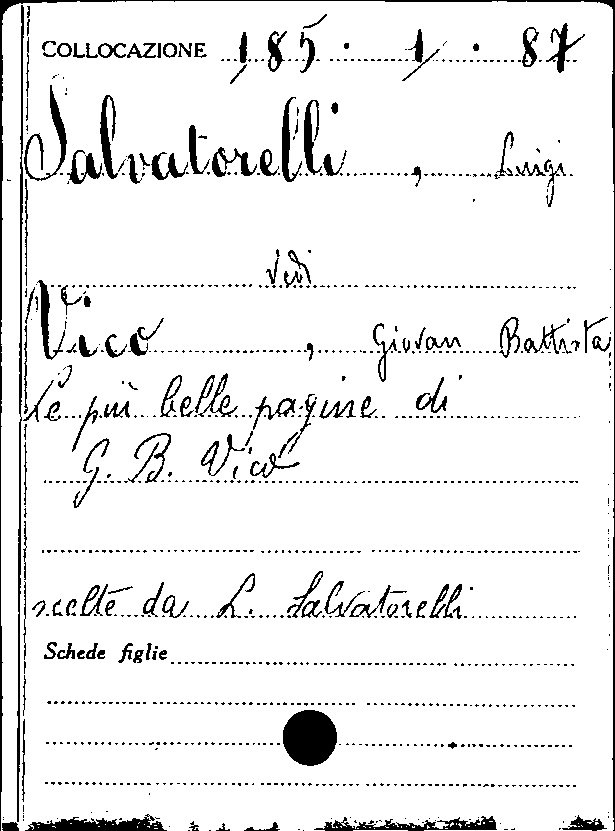 COLLOCAZIONE 185 · 1 · 87
Salvatorelli, Luigi
vedi
Vico, Giovan Battista
Le più belle pagine di
G. B. Vico
scelte da L. Salvatorelli
Schede figlie